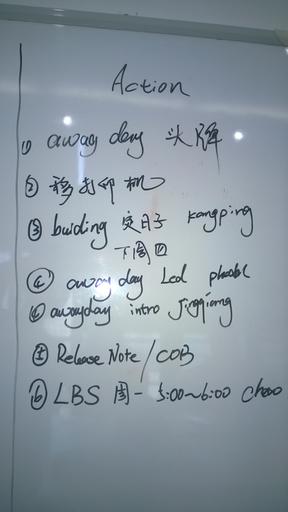 Action
① away day 头牌
② 移打印机
③ buiding 定日子 kangping
下周四
④ away day Led
⑥ awayday intro Jingqiang
⑦ Release Note / COB
⑥ LBS 周一 5:00~6:00 chao